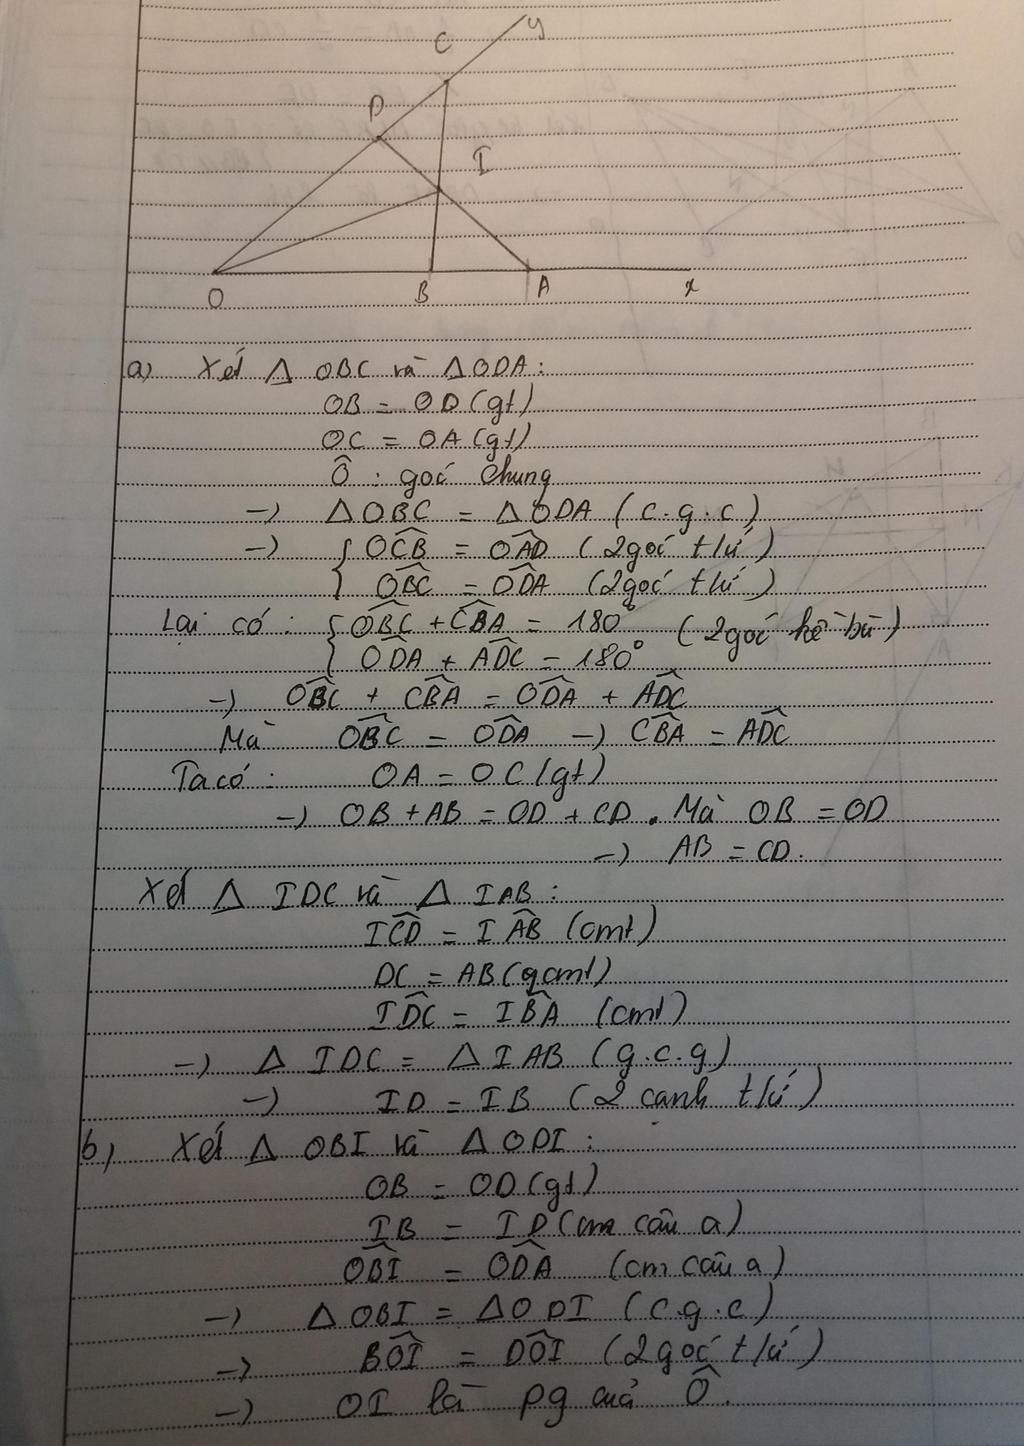 y
C
D
I
O B A x
a) Xét Δ OBC và Δ ODA :
OB = OD (gt)
OC = OA (gt)
Ô : góc chung
→ Δ OBC = Δ ODA ( c.g.c )
→ { OĈB = OÂD ( 2 góc t/ứ )
{ OB̂C = OD̂A ( 2 góc t/ứ )
Lại có : { OB̂C + CB̂A = 180° ( 2 góc kề bù )
{ OD̂A + AD̂C = 180°
→ OB̂C + CB̂A = OD̂A + AD̂C
Mà OB̂C = OD̂A → CB̂A = AD̂C
Ta có : OA = OC (gt)
→ OB + AB = OD + CD . Mà OB = OD
→ AB = CD .
Xét Δ IDC và Δ IAB :
IĈD = IÂB (cmt)
DC = AB (cmt)
ID̂C = IB̂A (cmt)
→ Δ IDC = Δ IAB ( g.c.g )
→ ID = IB ( 2 cạnh t/ứ )
b) Xét Δ OBI và Δ ODI :
OB = OD (gt)
IB = ID (cm câu a)
OB̂I = OD̂A (cm câu a)
→ Δ OBI = Δ ODI ( c.g.c )
→ BÔI = DÔI ( 2 góc t/ứ )
→ OI là pg của Ô .